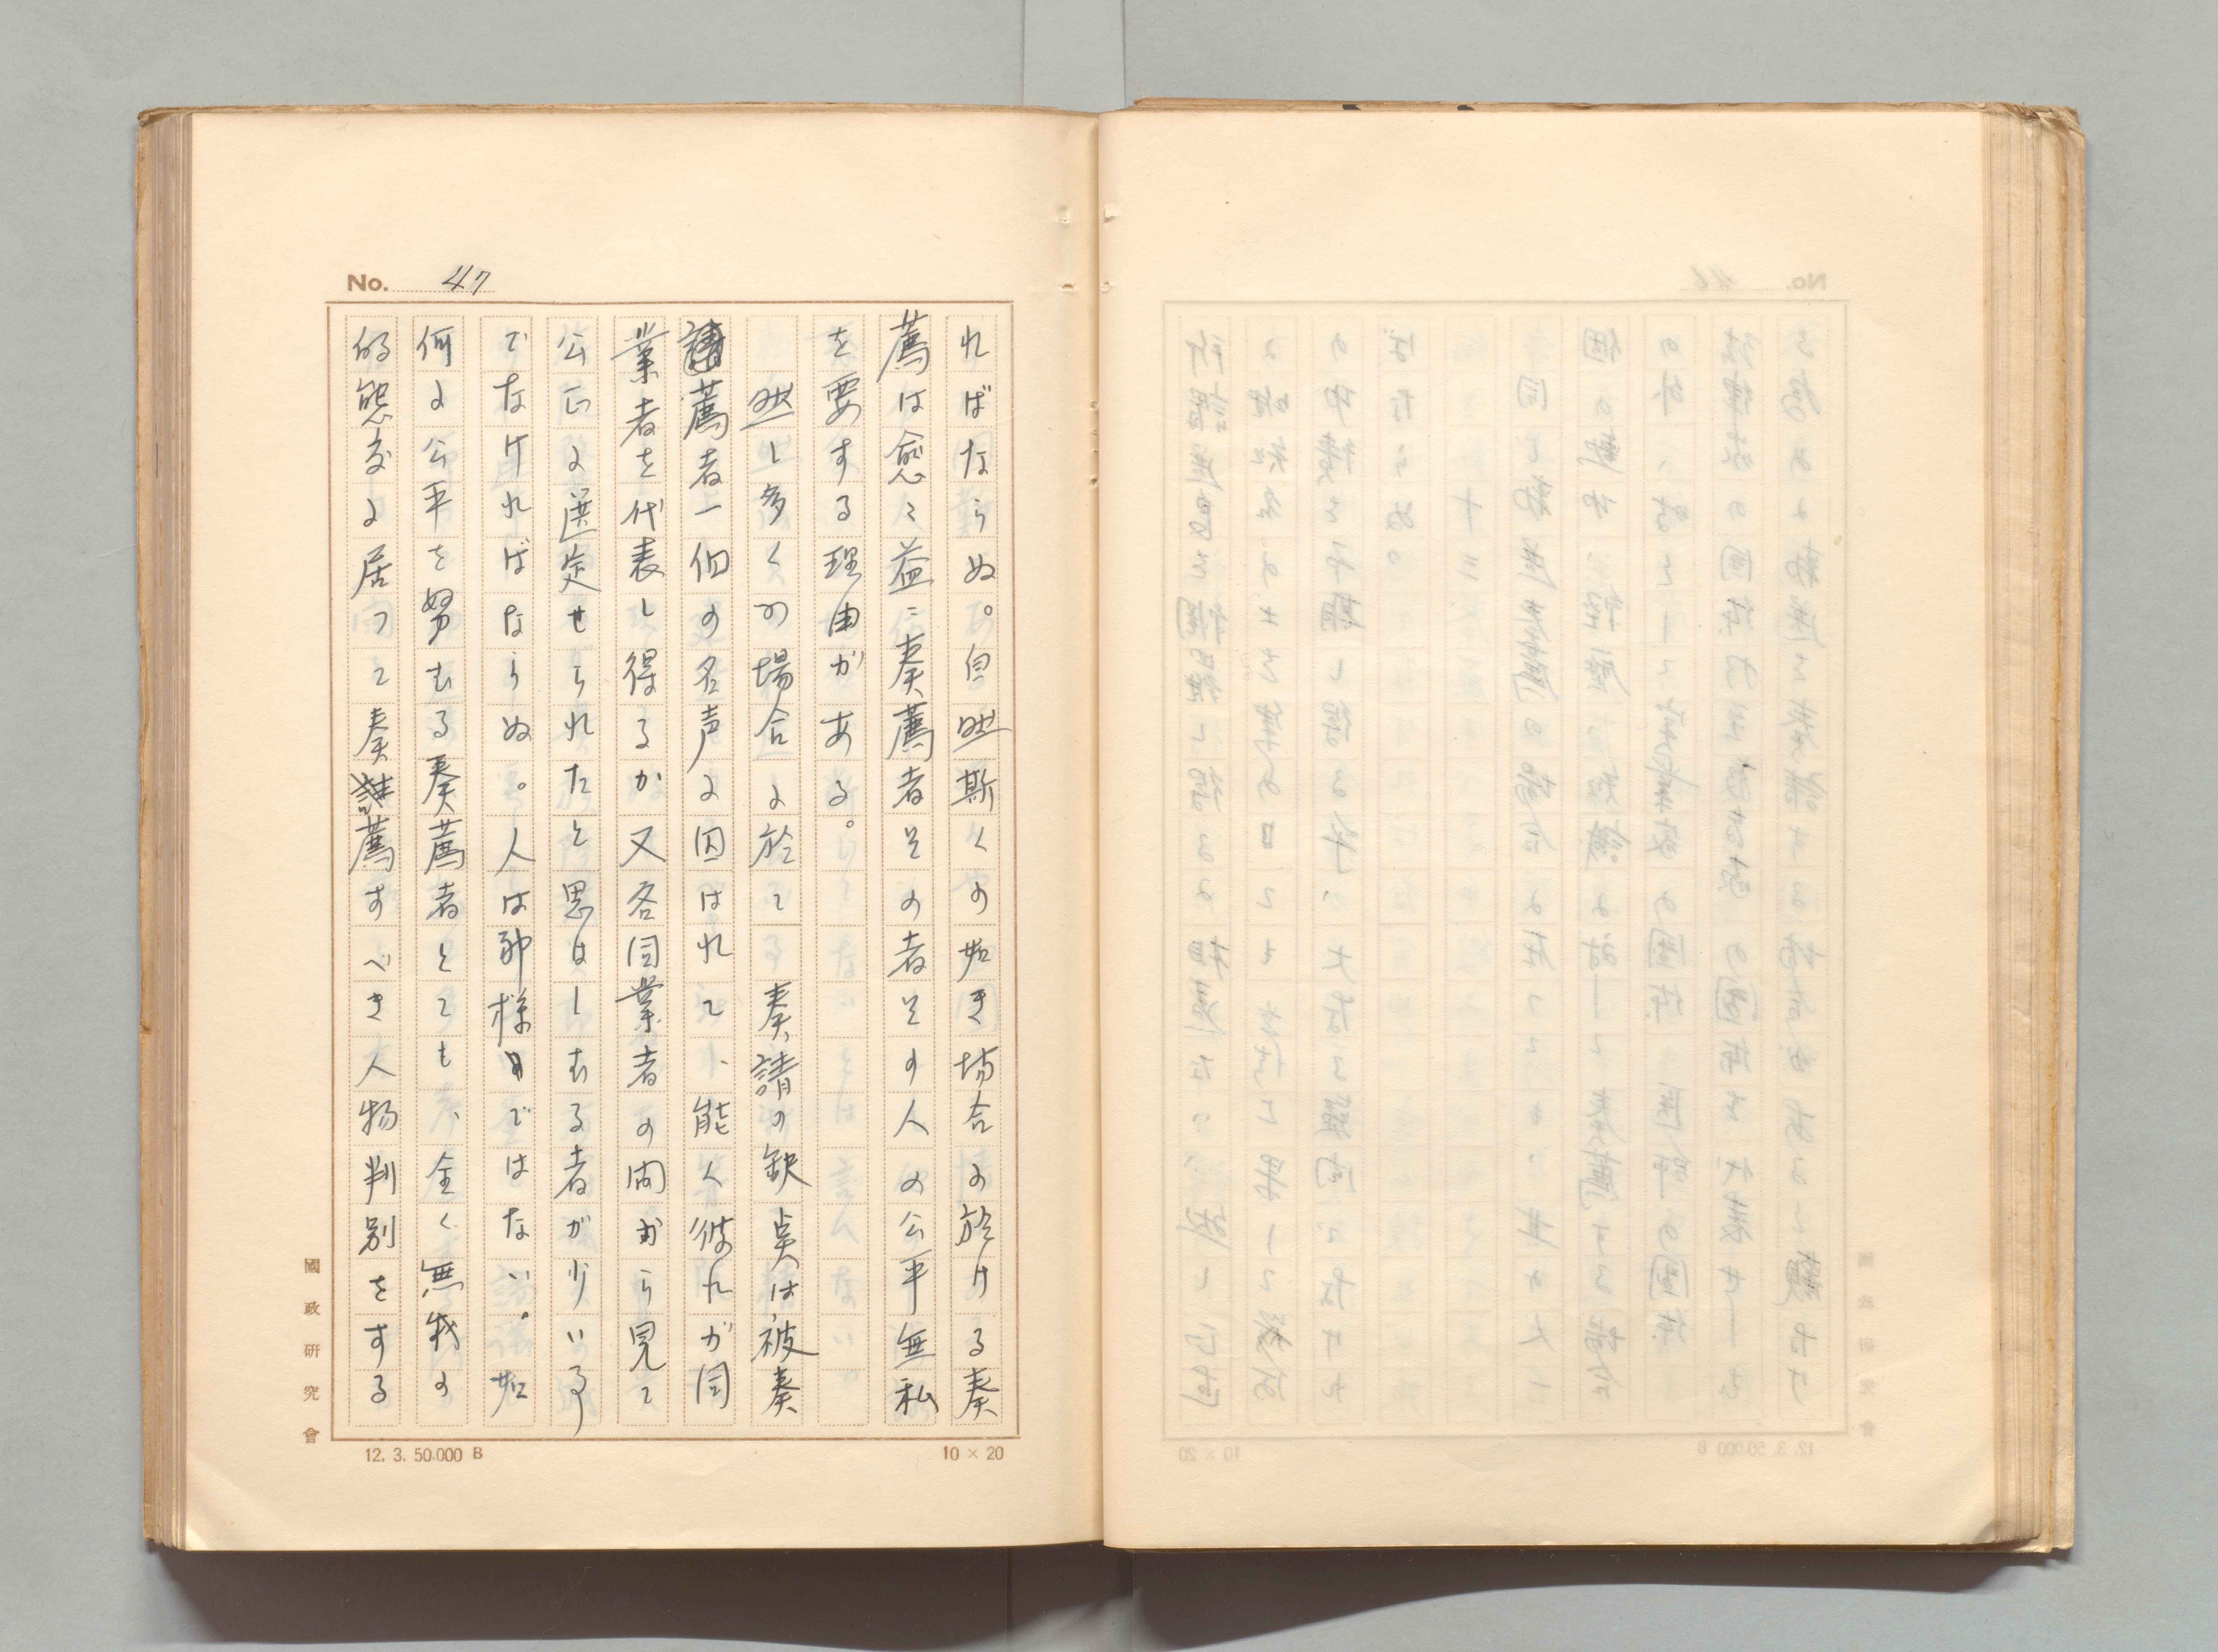 No. 47
ればならぬ。自然斯くの如き場合に於ける奏
薦は愈々益々奏薦者その者その人の公平無私
を要する理由がある。
然し多くの場合に於て奏請の欽点は被奏
薦者一個の名声に囚はれて、能く彼れが同
業者を代表し得るか又各同業者の間から見て
公正に選定せられたと思はしむる者が少いる
でなければならぬ。人は神様ではない。如
何に公平を努むる奏薦者としても、全く無我の
的態度に居つて奏薦すべき人物判別をする
國政研究會
12. 3. 50,000 B
10 × 20